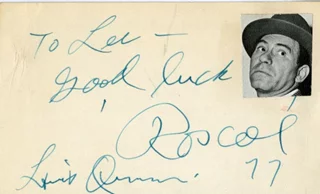 To Lee –
Good luck
!
Roscoe
Louis Quinn
77